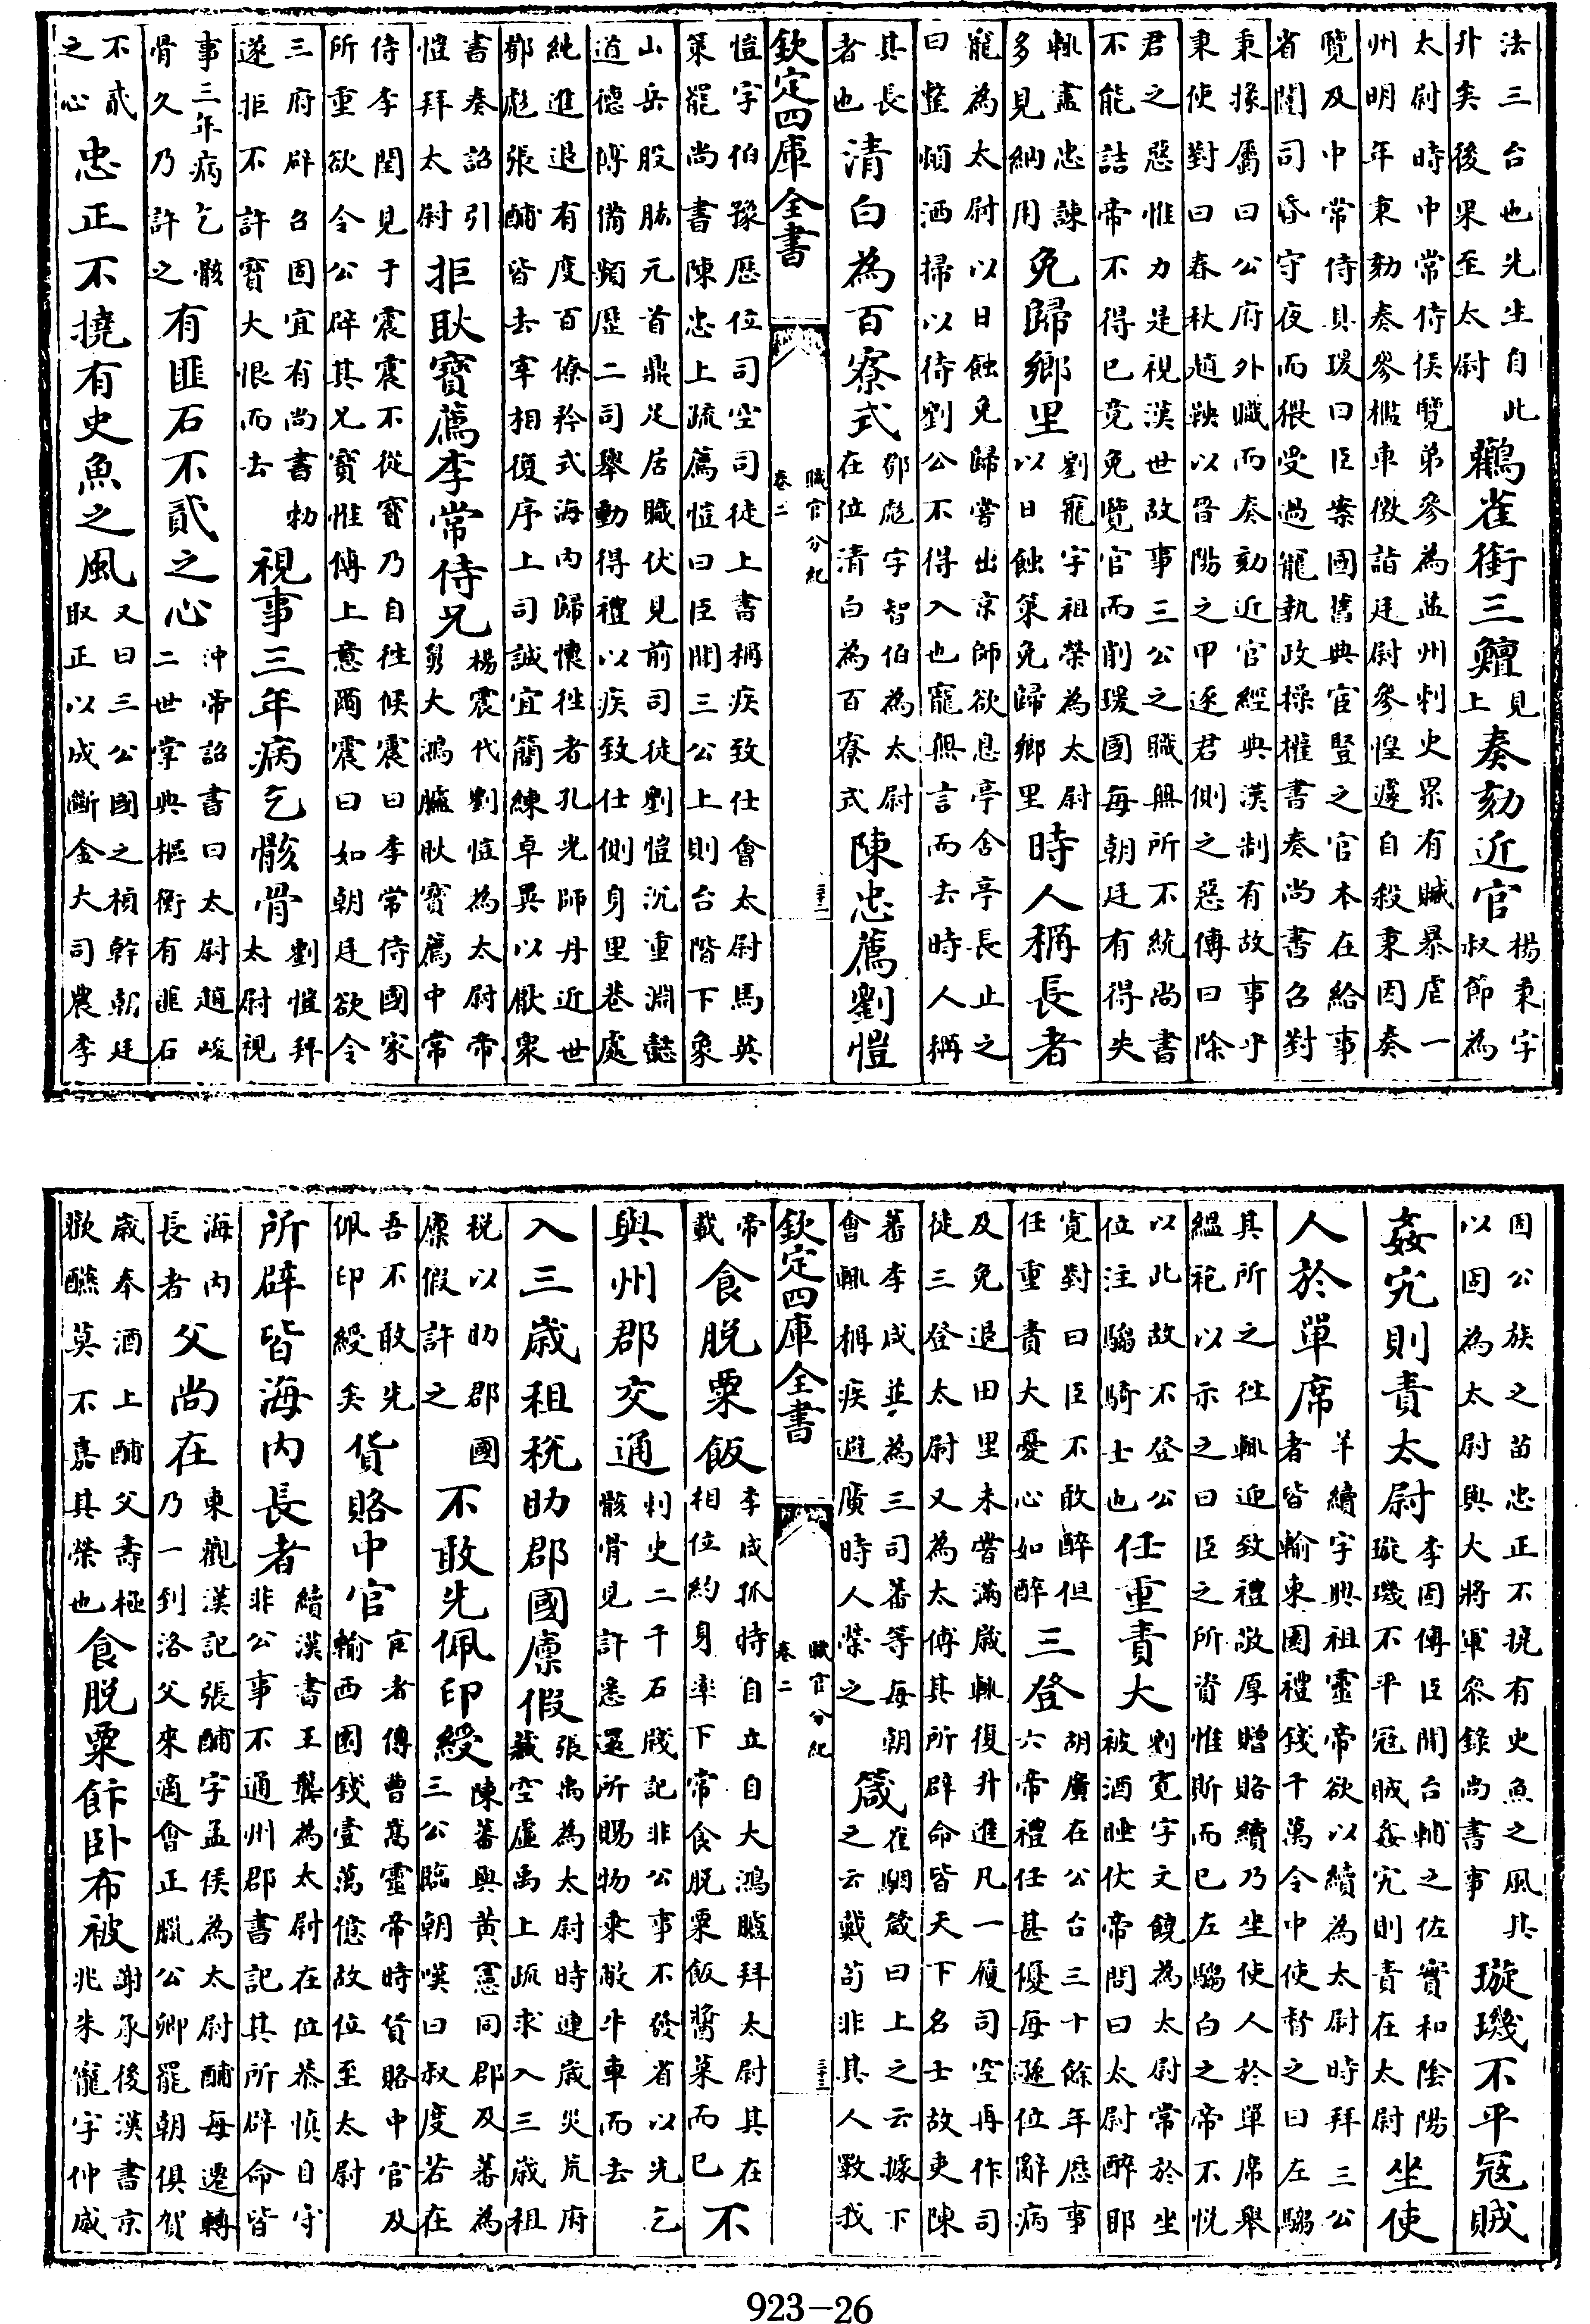 法三台也先生自此
升矣後果至太尉
鸛雀銜三鱣
見
上
奏劾近官
楊秉字
叔節為
太尉時中常侍侯覽弟參為益州刺史累有贓暴虐一
州明年秉劾奏參檻車徵詣廷尉參惶遽自殺秉因奏
覽及中常侍具瑗曰臣案國舊典宦豎之官本在給事
省闥司昏守夜而猥受過寵執政操權書奏尚書召對
秉掾屬曰公府外職而奏劾近官經典漢制有故事乎
秉使對曰春秋趙鞅以晉陽之甲逐君側之惡傳曰除
君之惡惟力是視漢世故事三公之職無所不統尚書
不能詰帝不得已竟免覽官而削瑗國每朝廷有得失
輒盡忠諫
多見納用
免歸鄉里
劉寵字祖榮為太尉
以日蝕策免歸鄉里
時人稱長者
寵為太尉以日蝕免歸嘗出京師欲息亭舍亭長止之
曰整頓洒掃以待劉公不得入也寵無言而去時人稱
其長
者也
清白為百寮式
鄧彪字智伯為太尉
在位清白為百寮式
陳忠薦劉愷
欽定四庫全書
職官分紀
卷二
三十一
愷字伯豫歷位司空司徒上書稱疾致仕會太尉馬英
策罷尚書陳忠上疏薦愷曰臣聞三公上則台階下象
山岳股肱元首鼎足居職伏見前司徒劉愷沉重淵懿
道德博備頻歷二司舉動得禮以疾致仕側身里巷處
純進退有度百僚矜式海内歸懷往者孔光師丹近世
鄧彪張酺皆去宰相復序上司誠宜簡練卓異以厭衆
書奏詔引
愷拜太尉
拒耿寳薦李常侍兄
楊震代劉愷為太尉帝
舅大鴻臚耿寳薦中常
侍李閏見于震震不從寳乃自往候震曰李常侍國家
所重欲令公辟其兄寳惟傳上意爾震曰如朝廷欲令
三府辟召固宜有尚書勑
遂拒不許寳大恨而去
視事三年病乞骸骨
劉愷拜
太尉視
事三年病乞骸
骨久乃許之
有匪石不貳之心
沖帝詔書曰太尉趙峻
二世掌典樞衡有匪石
不貳
之心
忠正不撓有史魚之風
又曰三公國之楨幹朝廷
取正以成斷金大司農李
固公族之苗忠正不撓有史魚之風其
以固為太尉與大將軍參錄尚書事
璇璣不平冦賊
姦宄則責太尉
李固傳臣聞台輔之佐實和陰陽
璇璣不平冦賊姦宄則責在太尉
坐使
人於單席
羊續字興祖靈帝欲以續為太尉時拜三公
者皆輸東園禮錢千萬令中使督之曰左騶
其所之往輒迎致禮敬厚贈賂續乃坐使人於單席舉
緼袍以示之曰臣之所資惟斯而已左騶白之帝不悅
以此故不登公
位注騶騎士也
任重責大
劉寛字文饒為太尉常於坐
被酒睡伏帝問曰太尉醉耶
寛對曰臣不敢醉但
任重責大憂心如醉
三登
胡廣在公台三十餘年歴事
六帝禮任甚優每遜位辭病
及免退田里未嘗滿歲輒復升進凡一履司空再作司
徒三登太尉又為太傅其所辟命皆天下名士故吏陳
蕃李咸並為三司蕃等每朝
會輒稱疾避廣時人榮之
箴
崔駰箴曰上之云據下
之云戴苟非其人斁我
欽定四庫全書
職官分紀
卷二
三十二
帝
載
食脱粟飯
李咸孤特自立自大鴻臚拜太尉其在
相位約身率下常食脱粟飯醬菜而已
不
與州郡交通
刺史二千石牋記非公事不發省以光乞
骸骨見許悉還所賜物乘敝牛車而去
入三歲租税助郡國廪假
張禹為太尉時連歲災荒府
藏空虛禹上疏求入三歲租
税以助郡國
廪假許之
不敢先佩印綬
陳蕃與黄憲同郡及蕃為
三公臨朝嘆曰叔度若在
吾不敢先
佩印綬矣
貨賂中官
宦者傳曹嵩靈帝時貨賂中官及
輸西園錢壹萬億故位至太尉
所辟皆海内長者
續漢書王龔為太尉在位恭慎自守
非公事不通州郡書記其所辟命皆
海内
長者
父尚在
東觀漢記張酺字孟侯為太尉酺每遷轉
乃一到洛父來適會正臘公卿罷朝俱賀
歲奉酒上酺父壽極
歡醼莫不嘉其榮也
食脱粟飰卧布被
謝承後漢書京
兆朱寵字仲威
923-26